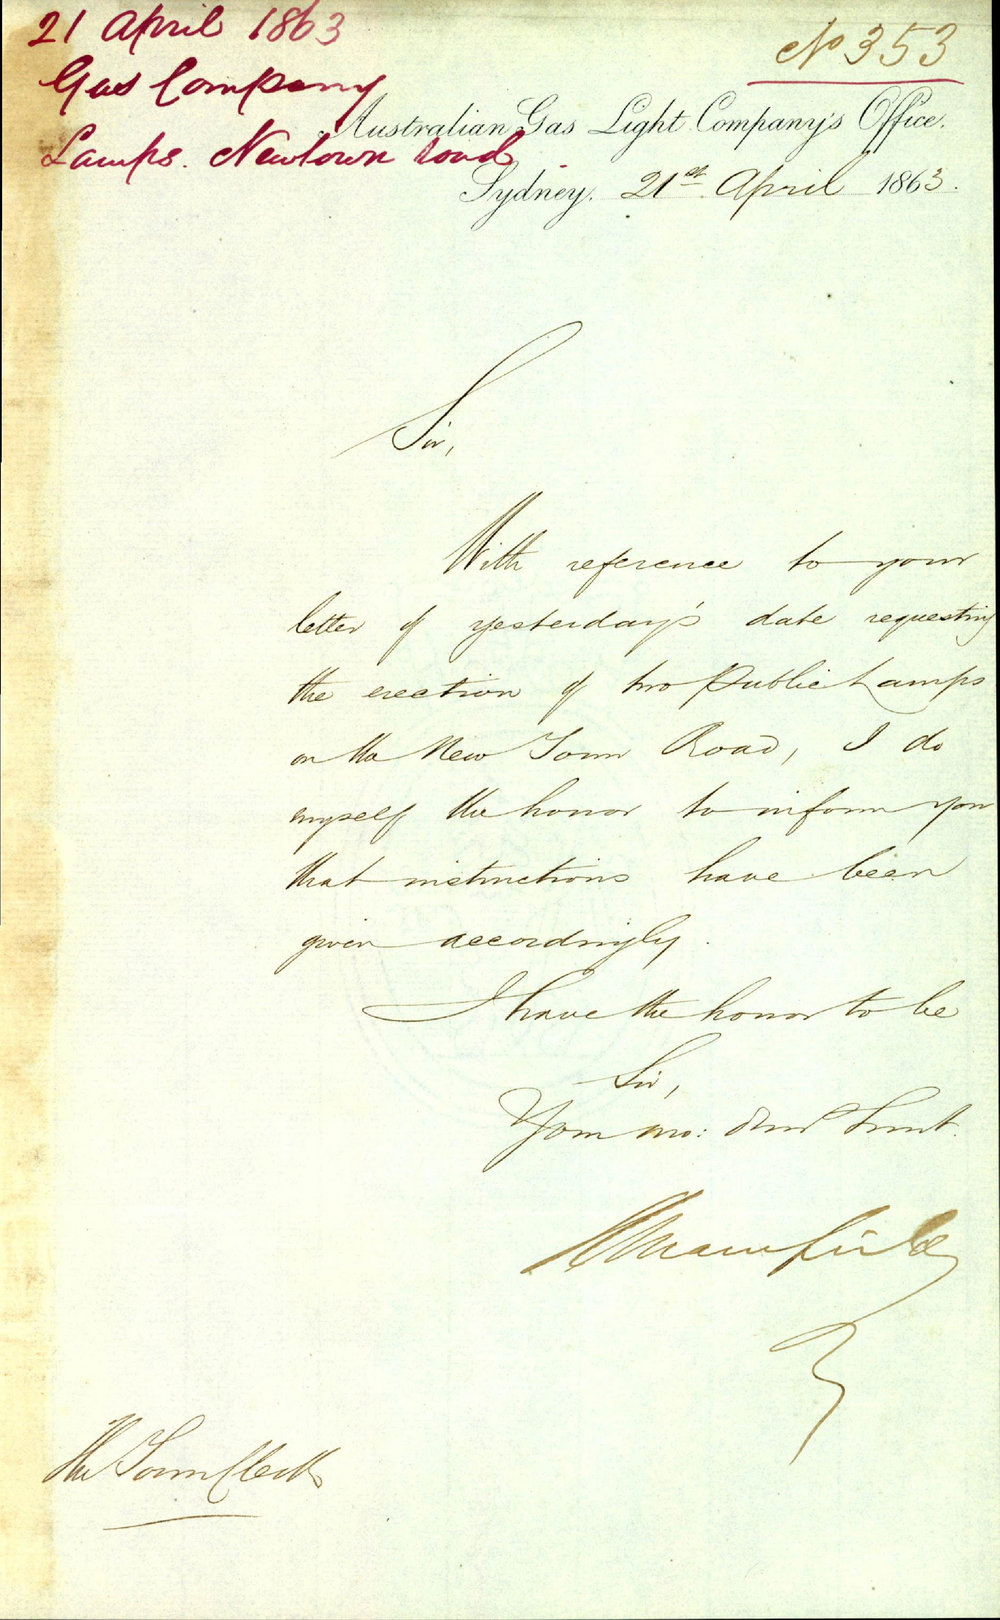 21 April 1863
Gas Company
Lamps. Newtown road.
No 353
Australian Gas Light Company's Office.
Sydney. 21st April 1863.
Sir,
With reference to your
letter of yesterday's date requesting
the erection of two Public Lamps
on the New Town Road, I do
myself the honor to inform you
that instructions have been
given accordingly.
I have the honor to be
Sir,
Your mo: Obed Servt.
Mansfield
The Town Clerk